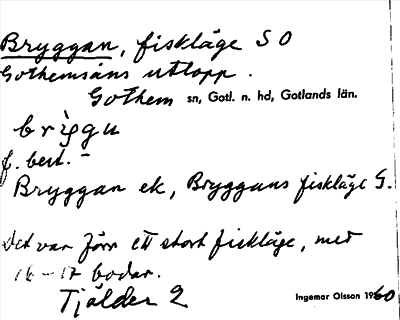 Bryggan, fiskläge SO
Gothemsåns utlopp.
Gothem sn, Gotl. n. hd, Gotlands län.
briggu
f. best. -
Bryggan ek, Bryggans fiskläge G.
Det var förr ett stort fiskläge, med
16-17 bodar.
Tjälder 2
Ingemar Olsson 1960